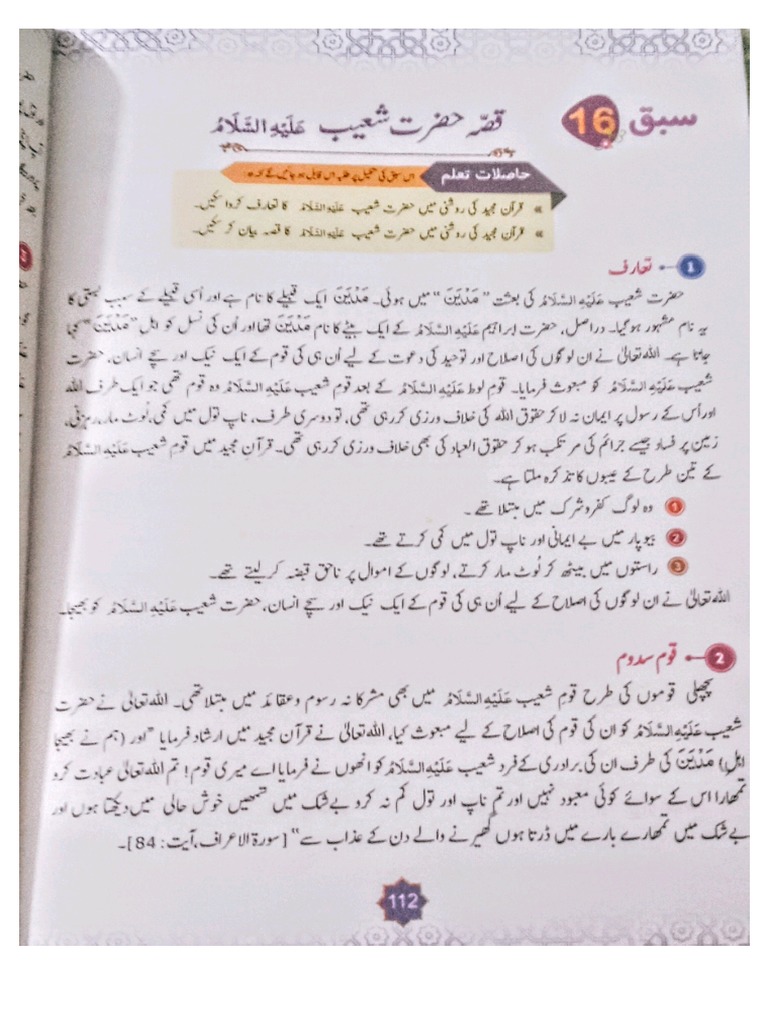 سبق 16
قصّہ حضرت شعیب عَلَيْهِ السَّلَامُ
حاصلات تعلم
اس سبق کی تکمیل پر طلبہ اس قابل ہو جائیں گے کہ وہ:
» قرآن مجید کی روشنی میں حضرت شعیب عَلَيْهِ السَّلَامُ کا تعارف کروا سکیں۔
» قرآن مجید کی روشنی میں حضرت شعیب عَلَيْهِ السَّلَامُ کا قصہ بیان کر سکیں۔
1 تعارف
حضرت شعیب عَلَيْهِ السَّلَامُ کی بعثت "مَدْیَنَ" میں ہوئی۔ مَدْیَنَ ایک قبیلے کا نام ہے اور اُسی قبیلے کے سبب بستی کا
یہ نام مشہور ہو گیا۔ دراصل، حضرت ابراہیم عَلَيْهِ السَّلَامُ کے ایک بیٹے کا نام مَدْیَنَ تھا اور اُن کی نسل کو اہل "مَدْیَنَ" کہا
جاتا ہے۔ اللہ تعالیٰ نے ان لوگوں کی اصلاح اور توحید کی دعوت کے لیے اُن ہی کی قوم کے ایک نیک اور سچے انسان، حضرت
شعیب عَلَيْهِ السَّلَامُ کو مبعوث فرمایا۔ قومِ لوط عَلَيْهِ السَّلَامُ کے بعد قوم شعیب عَلَيْهِ السَّلَامُ وہ قوم تھی جو ایک طرف اللہ
اور اُس کے رسول پر ایمان نہ لا کر حقوق اللہ کی خلاف ورزی کر رہی تھی، تو دوسری طرف، ناپ تول میں کمی، لُوٹ مار، رہزنی،
زمین پر فساد جیسے جرائم کی مرتکب ہو کر حقوق العباد کی بھی خلاف ورزی کر رہی تھی۔ قرآنِ مجید میں قوم شعیب عَلَيْهِ السَّلَامُ
کے تین طرح کے عیبوں کا تذکرہ ملتا ہے۔
1 وہ لوگ کفر و شرک میں مبتلا تھے۔
2 بیوپار میں بے ایمانی اور ناپ تول میں کمی کرتے تھے۔
3 راستوں میں بیٹھ کر لُوٹ مار کرتے، لوگوں کے اموال پر ناحق قبضہ کر لیتے تھے۔
اللہ تعالیٰ نے ان لوگوں کی اصلاح کے لیے اُن ہی کی قوم کے ایک نیک اور سچے انسان، حضرت شعیب عَلَيْهِ السَّلَامُ کو بھیجا۔
2 قوم سدوم
پچھلی قوموں کی طرح قومِ شعیب عَلَيْهِ السَّلَامُ میں بھی مشرکانہ رسوم و عقائد میں مبتلا تھی۔ اللہ تعالیٰ نے حضرت
شعیب عَلَيْهِ السَّلَامُ کو ان کی قوم کی اصلاح کے لیے مبعوث کیا، اللہ تعالیٰ نے قرآن مجید میں ارشاد فرمایا "اور (ہم نے بھیجا
اہلِ) مَدْیَنَ کی طرف ان کی برادری کے فرد شعیب عَلَيْهِ السَّلَامُ کو انھوں نے فرمایا اے میری قوم! تم اللہ تعالیٰ عبادت کرو
تمھارا اس کے سوائے کوئی معبود نہیں اور تم ناپ اور تول کم نہ کرو بے شک میں تمھیں خوش حالی میں دیکھتا ہوں اور
بے شک میں تمھارے بارے میں ڈرتا ہوں گھیرنے والے دن کے عذاب سے" [سورۃ الاعراف، آیت: 84]۔
112